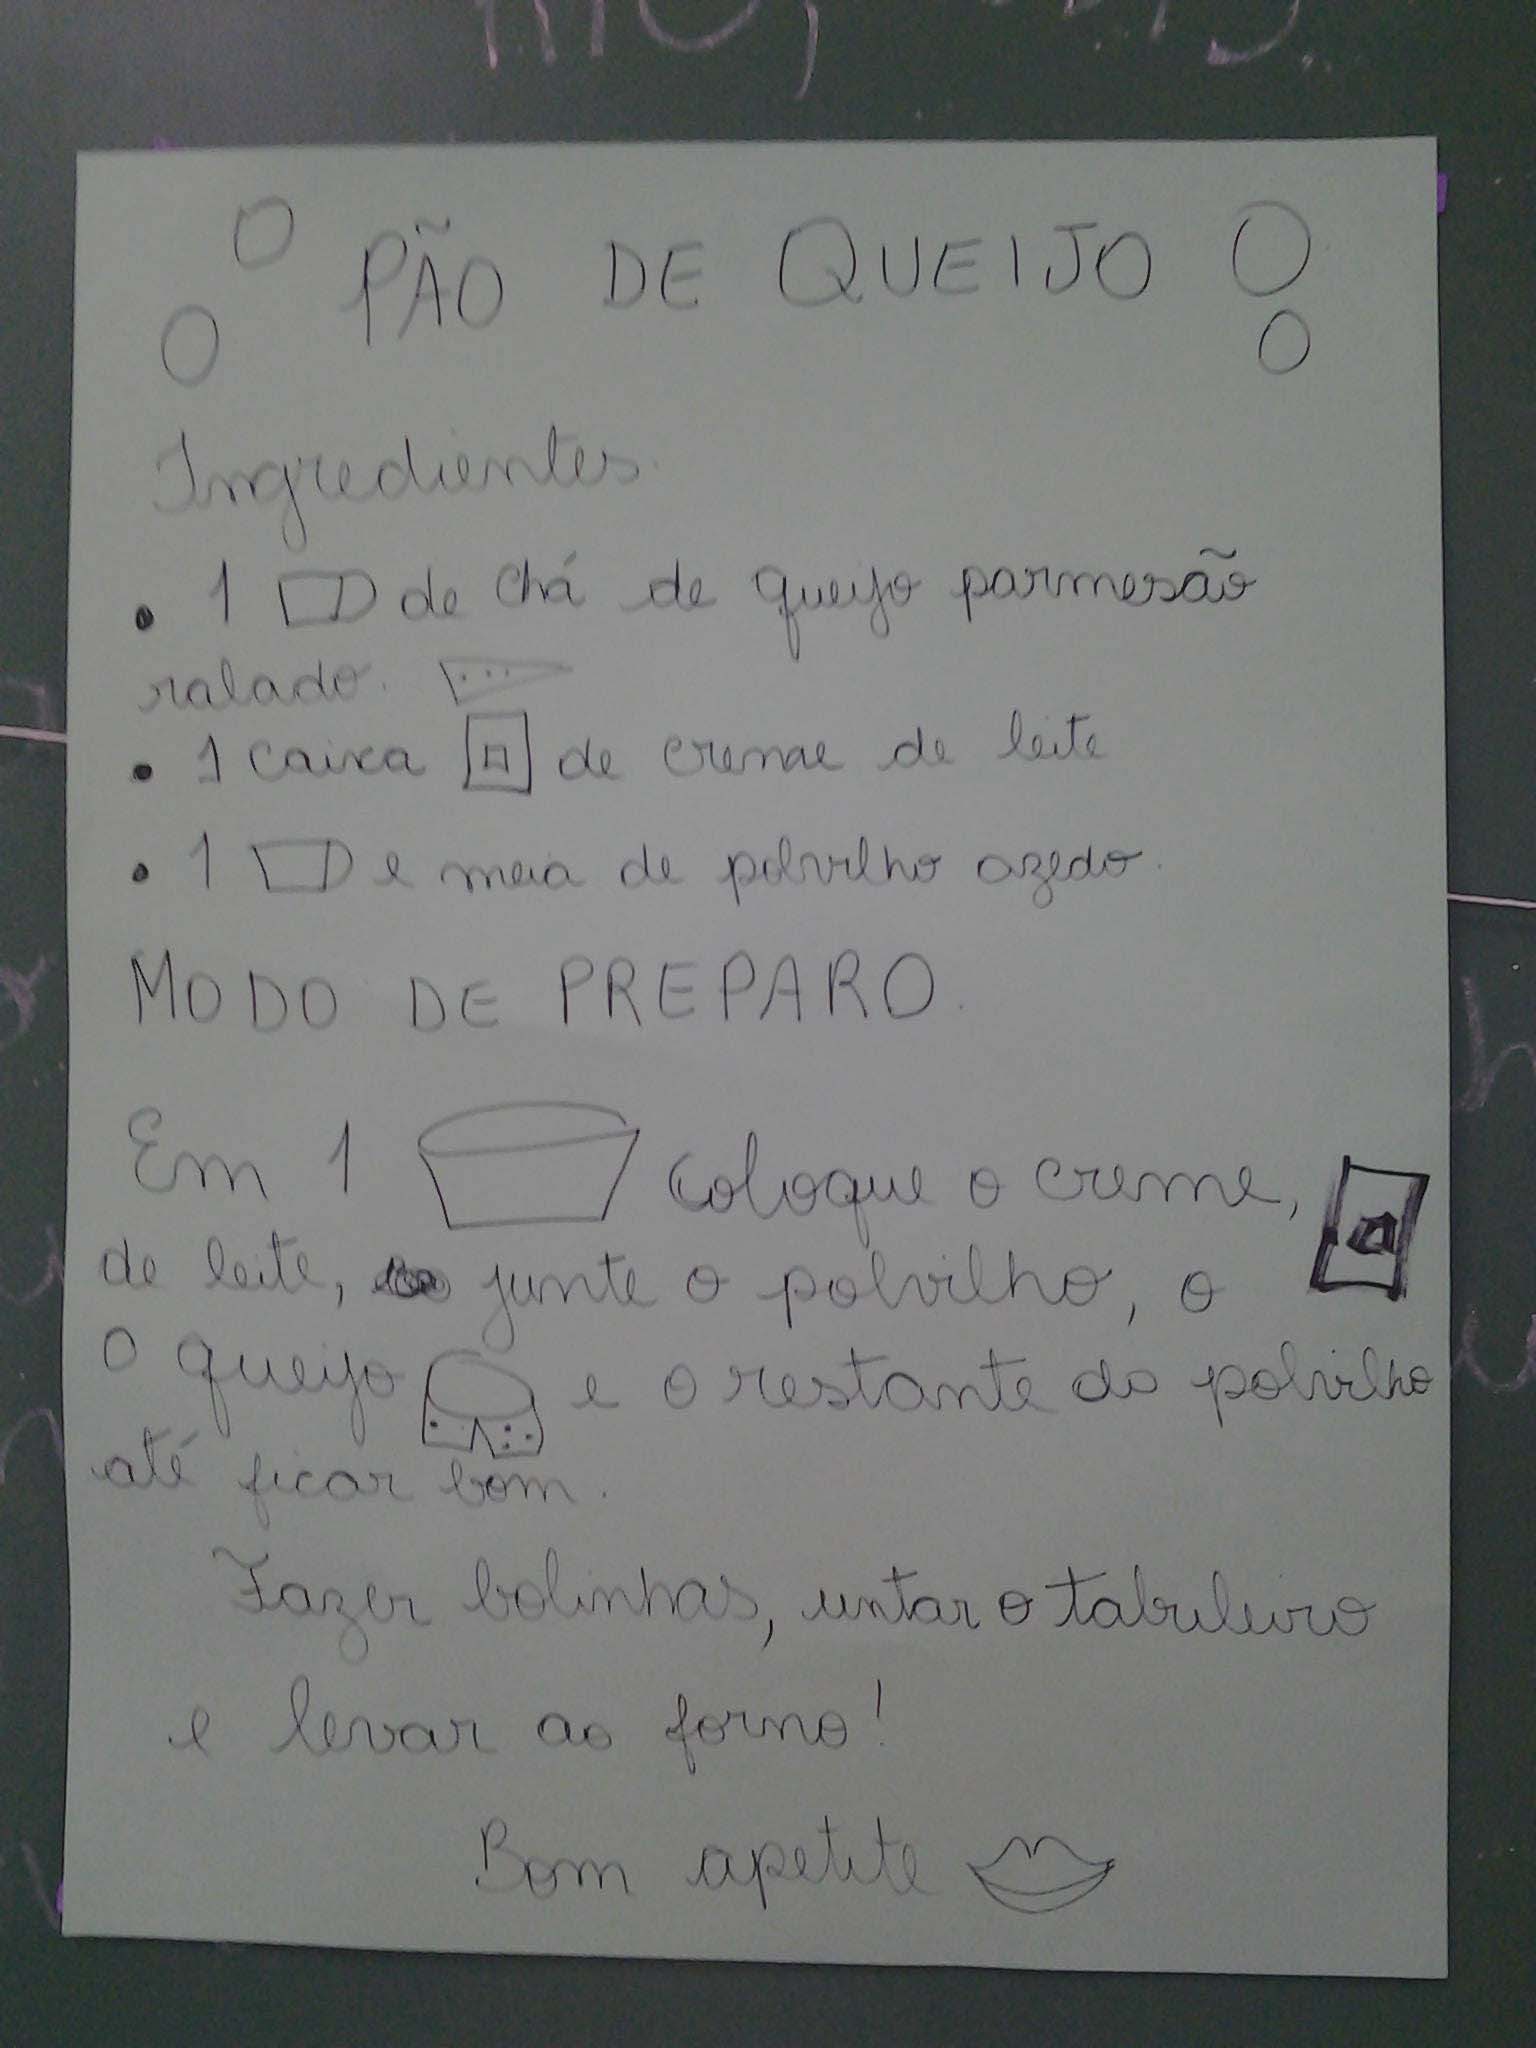 PÃO DE QUEIJO
Ingredientes.
• 1 de chá de queijo parmesão
ralado.
• 1 caixa de creme de leite
• 1 e meia de polvilho azedo.
MODO DE PREPARO.
Em 1 coloque o creme,
de leite, junte o polvilho, o
o queijo e o restante do polvilho
até ficar bom.
Fazer bolinhas, untar o tabuleiro
e levar ao forno!
Bom apetite